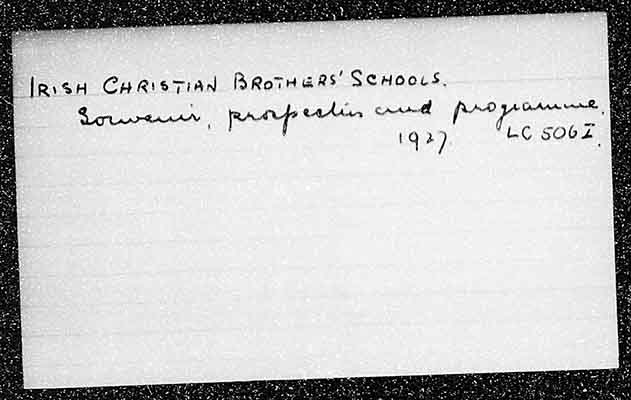 IRISH CHRISTIAN BROTHERS' SCHOOLS.
Souvenir, prospectus and programme.
1927. LC 506 I.